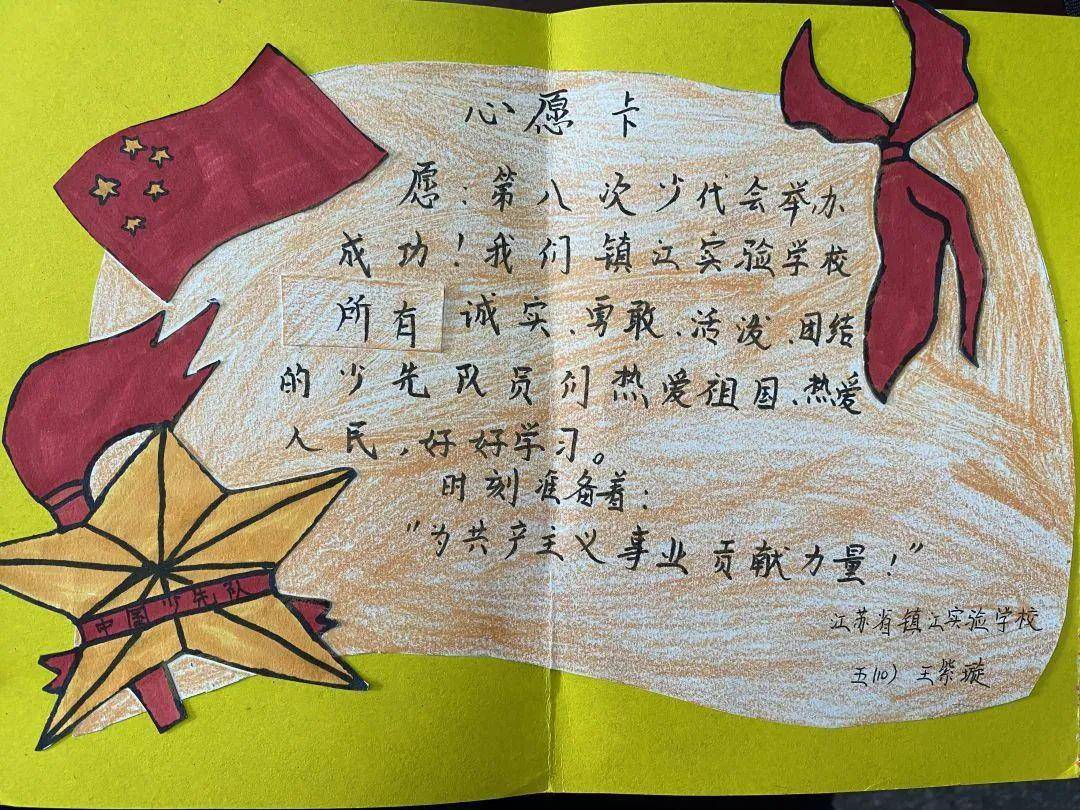 心愿卡
愿:第八次少代会举办
成功!我们镇江实验学校
所有诚实、勇敢、活泼、团结
的少先队员们热爱祖国、热爱
人民,好好学习。
时刻准备着:
"为共产主义事业贡献力量!"
江苏省镇江实验学校
五(10) 王紫璇
中国少先队